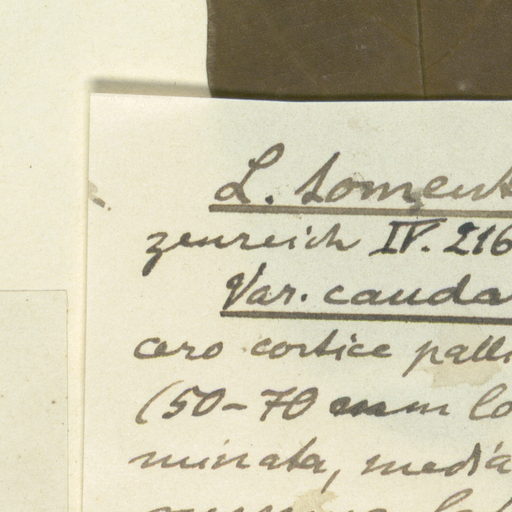 L. toment
zenreich IV. 216
Var. cauda
cero cortice palli
(50-70 mm lo
minata, media